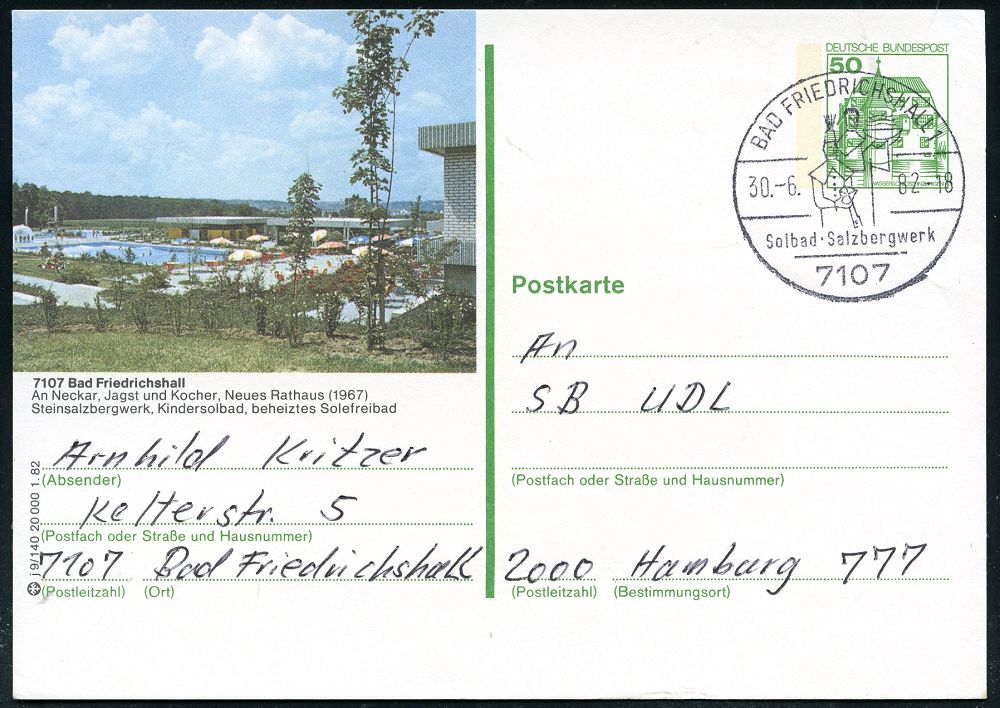 7107 Bad Friedrichshall
An Neckar, Jagst und Kocher, Neues Rathaus (1967)
Steinsalzbergwerk, Kindersolbad, beheiztes Solefreibad
Arnhild Kritzer
(Absender)
Kelterstr. 5
(Postfach oder Straße und Hausnummer)
7107 Bad Friedrichshall
(Postleitzahl) (Ort)
j 9/140 20 000 1.82
DEUTSCHE BUNDESPOST
50
WASSERSCHLOSS INZLINGEN
BAD FRIEDRICHSHALL 1
30.-6. 82-18
Solbad·Salzbergwerk
7107
Postkarte
An
SB UDL
(Postfach oder Straße und Hausnummer)
2000 Hamburg 777
(Postleitzahl) (Bestimmungsort)